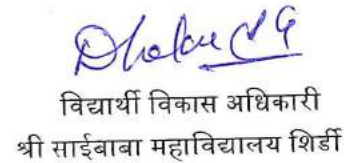 विद्यार्थी विकास अधिकारी
श्री साईबाबा महाविद्यालय शिर्डी